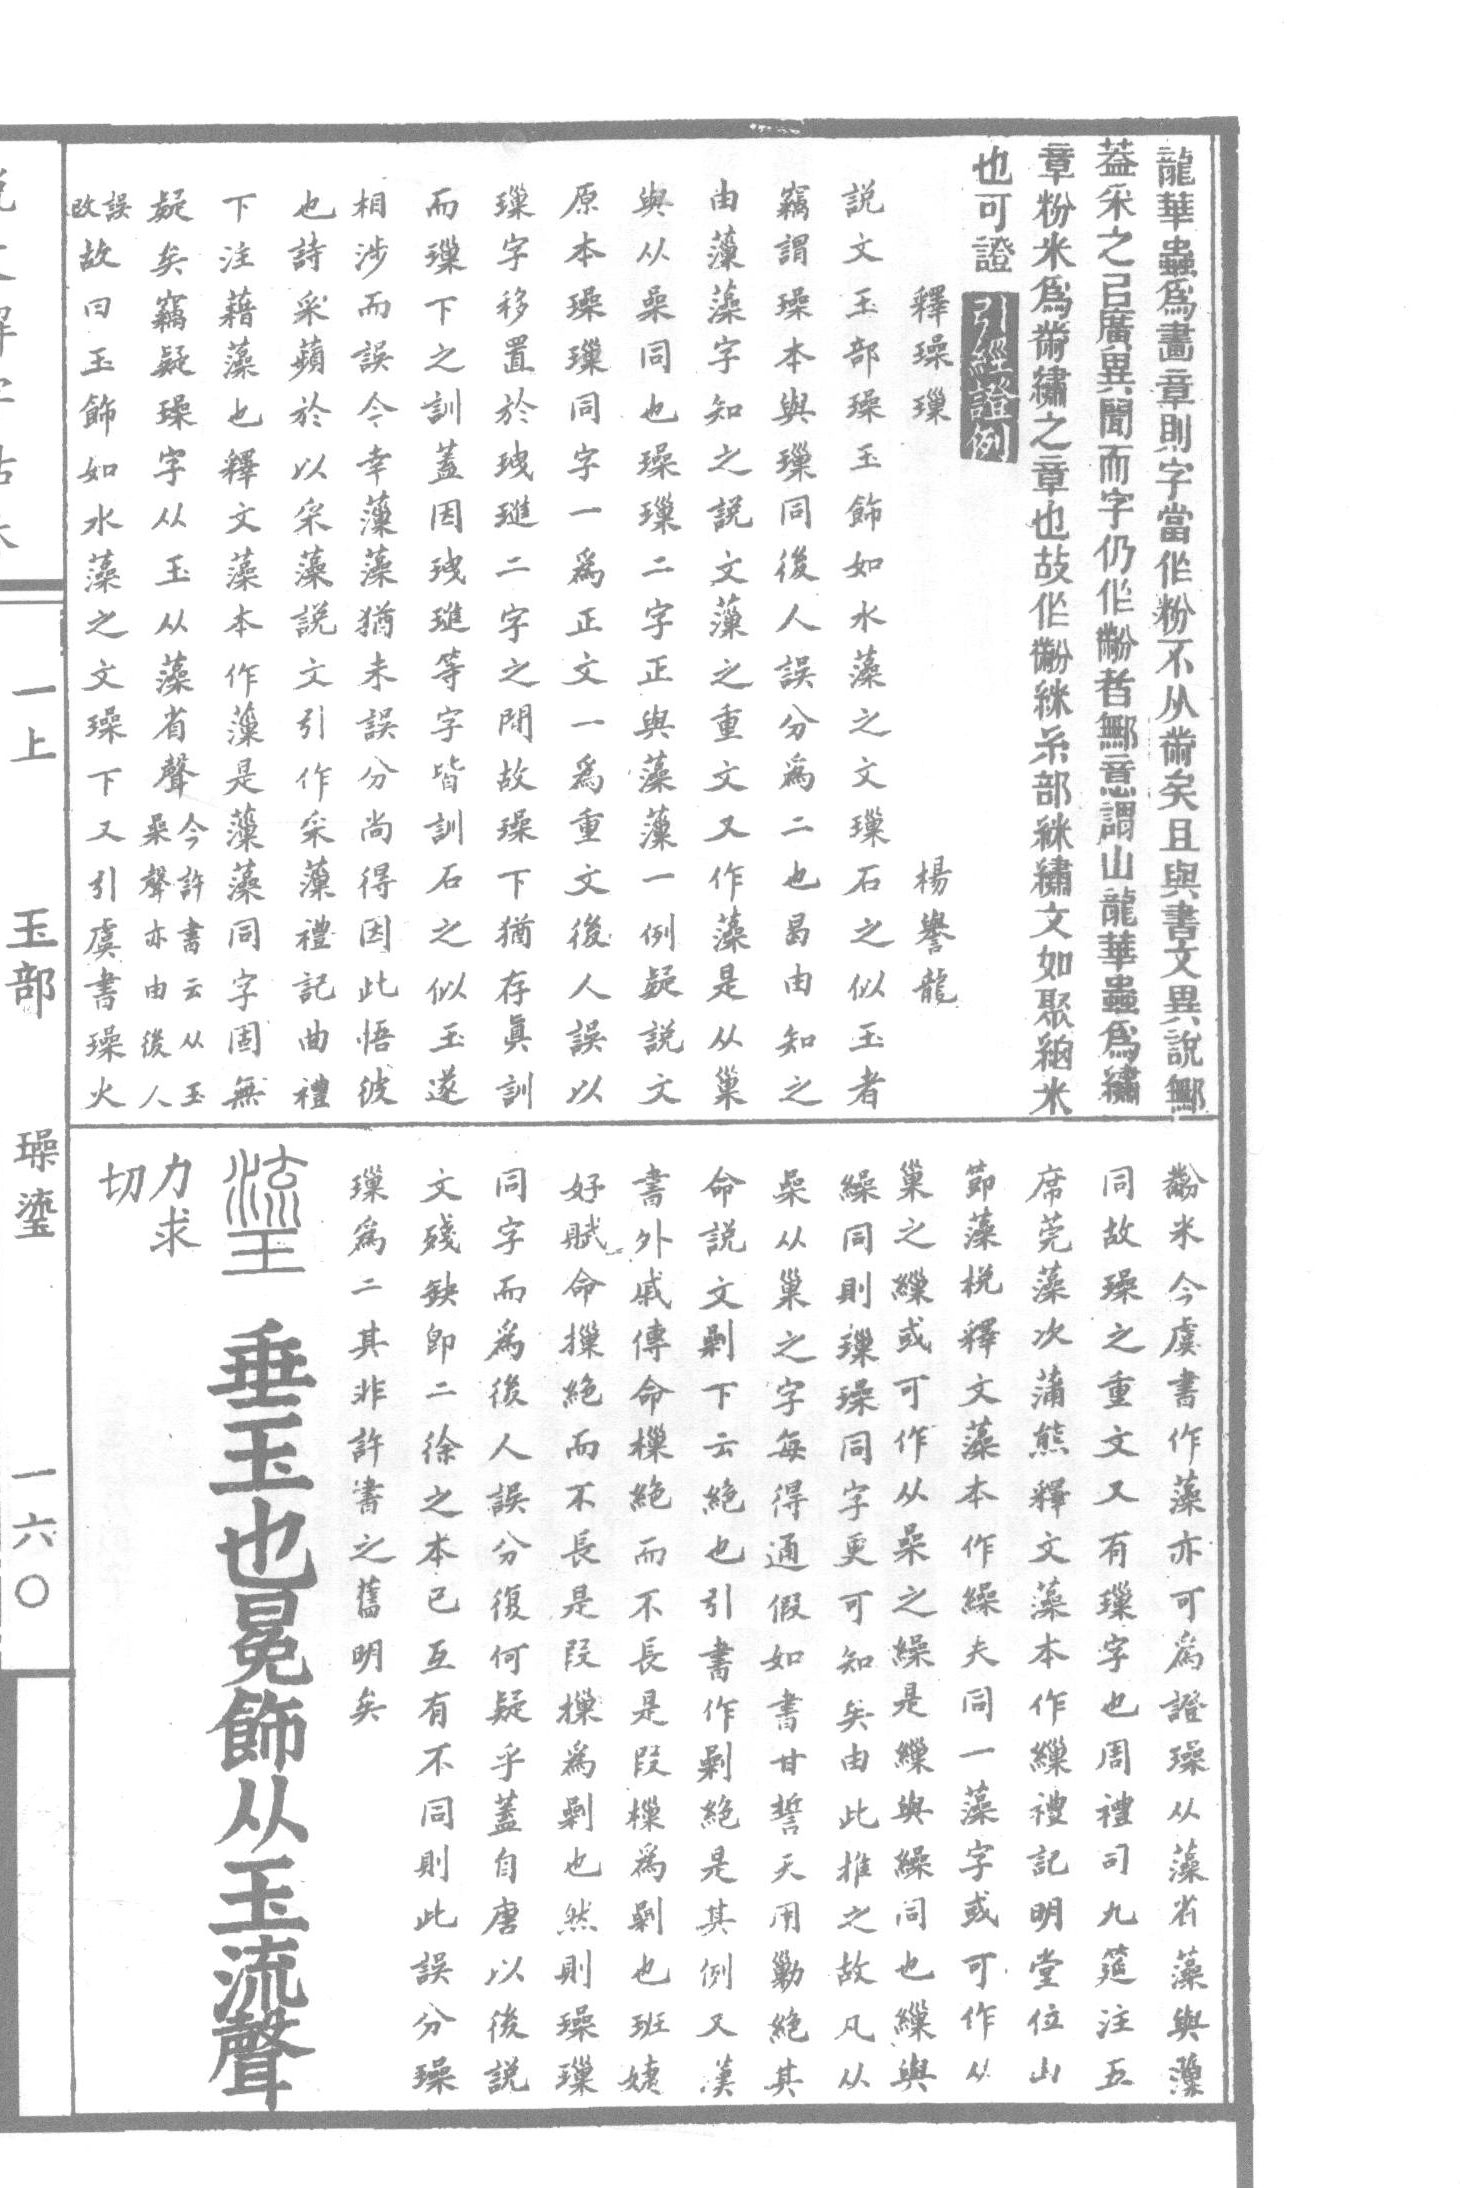 龍華蟲爲畫章則字當作粉不从黹矣且與書文異說鄦
葢采之㠯廣異聞而字仍作黺者鄦意謂山龍華蟲爲繡
章粉米爲黹繡之章也故作黺絑糸部絑繡文如聚細米
也可證 引經證例
釋璪璅 楊譽龍
説文玉部璪玉飾如水藻之文璅石之似玉者
竊謂璪本與璅同後人誤分爲二也曷由知之
由薻藻字知之説文薻之重文又作藻是从巢
與从喿同也璪璅二字正與藻薻一例疑説文
原本璪璅同字一爲正文一爲重文後人誤以
璅字移置於㻏璡二字之閒故璪下猶存眞訓
而璅下之訓蓋因㻏璡等字皆訓石之似玉遂
相涉而誤今幸薻藻猶未誤分尚得因此悟彼
也詩采蘋於以采藻説文引作采薻禮記曲禮
下注藉藻也釋文藻本作薻是薻藻同字固無
疑矣竊疑璪字从玉从藻省聲今許書云从玉喿聲亦由後人
誤改故曰玉飾如水藻之文璪下又引虞書璪火
黺米今虞書作藻亦可爲證璪从藻省藻與薻
同故璪之重文又有璅字也周禮司九筵注五
席莞藻次蒲熊釋文藻本作繅禮記明堂位山
節藻梲釋文藻本作繰夫同一藻字或可作从
巢之繅或可作从喿之繰是繅與繰同也繅與
繰同則璅璪同字更可知矣由此推之故凡从
喿从巢之字每得通假如書甘誓天用勦絶其
命説文剿下云絶也引書作剿絶是其例又漢
書外戚傳命樔絶而不長是叚樔爲剿也班婕
妤賦命摷絶而不長是叚摷爲剿也然則璪璅
同字而爲後人誤分復何疑乎蓋自唐以後説
文殘缺卽二徐之本已互有不同則此誤分璪
璅爲二其非許書之舊明矣
瑬 垂玉也冕飾从玉流聲
力求切
一上 玉部 璪瑬 一六〇